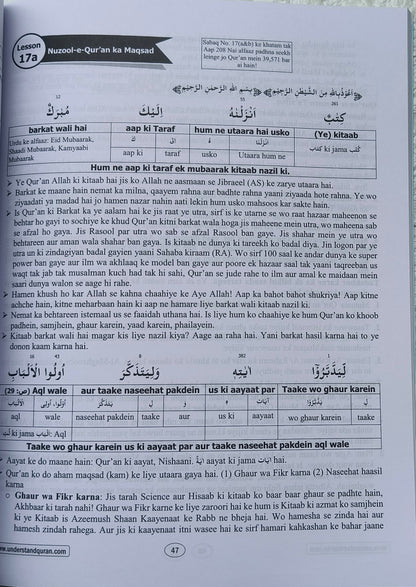 Lesson
17a
Nuzool-e-Qur'an ka Maqsad
Sabaq No. 17(a&b) ke khatam tak
Aap 208 Nai alfaaz padhna seekh
leinge jo Qur'an mein 39,571 bar
ai hain!
أَعُوذُ بِاللهِ مِنَ الشَّيْطٰنِ الرَّجِيْمِ بِسْمِ اللهِ الرَّحْمٰنِ الرَّحِيْمِ
261 55 12
كِتٰبٌ اَنْزَلْنٰهُ اِلَيْكَ مُبٰرَكٌ
(Ye) kitaab hum ne utaara hai usko aap ki Taraf barkat wali hai
كِتَاب ki jama كُتُب
Utaara hum ne usko taraf aap ki
Urdu ke alfaaz: Eid Mubaarak,
Shaadi Mubaarak, Kamyaabi
Mubaarak
Hum ne aap ki taraf ek mubaarak kitaab nazil ki.
Ye Qur'an Allah ki kitaab hai jis ko Allah ne aasmaan se Jibraeel (AS) ke zarye utaara hai.
Barkat ke maane hain nemat ka milna, qaayem rahna aur badhte rahna yaani ziyaada hote rahna. Ye wo
ziyaadati ya madad hai jo hamen nazar nahin aati lekin hum usko mahsoos kar sakte hain.
Is Qur'an ki Barkat ka ye aalam hai ke jis raat ye utra, sirf is ek utarne se wo raat hazaar maheenon se
behtar ho gayi to sochiye ke khud Qur'an kitni barkat wala hoga jis maheene mein utra, wo maheena sab
se afzal ho gaya. Jis Rasool par utra wo sab se afzal Rasool ban gaye. Jis shahar mein ye utra wo
behtareen aur aman wala shahar ban gaya. Is kitaab ne dunya ki tareekh ko badal diya. Jin logon par ye
utra un ki zindagiyan badal gayien yaani Sahaba kiraam (RA). Wo sirf 100 saal ke andar dunya ke super
power ban gaye aur ilm wa akhlaaq ke model ban gaye aur poore ek hazaar saal tak yaani taqreeban us
waqt tak jab tak musalman kuch had tak hi sahi, Qur'an se jude rahe to ilm aur amal ke maidaan mein
saari dunya walon se aage hi rahe.
Hamen khush ho kar Allah se kahna chaahiye ke Aye Allah! Aap ka bahot bahot shukriya! Aap kitne
achche hain, kitne meharbaan hain ki aap ne hamare liye barkat wali kitaab nazil ki.
Nemat ka behtareen istemaal us se faaidah uthana hai. Is liye hum ko chaahiye ke hum Qur'an ko khoob
padhein, samjhein, ghaur karein, yaad karein, phailayein.
Kitaab barkat wali hai magar kis liye nazil kiya? Aage aa raha hai. Yani barkat hasil karna hai to ye
donon kaam karna hai.
1 382 8 43 16
لِّيَدَّبَّرُوْٓا اٰيٰتِهٖ وَلِيَتَذَكَّرَ اُولُوا الْاَلْبَابِ
Taake wo ghaur karein us ki aayaat par aur taake naseehat pakdein Aql wale (ص: 29)
wo ghaur karein taake us ki aayaat naseehat pakdein taake aur wale aql
اَلْبَاب ki jama لُبّ: Aql
Taake wo ghaur karein us ki aayaat par aur taake naseehat pakdein aql wale
Aayat ke do maane hain: Qur'an ki aayat, Nishaani. آيَة aayat ki jama آيَات hai.
Qur'an ko do aham maqsad (kam) ke liye utaara gaya hai. (1) Ghaur wa Fikr karna (2) Naseehat haasil
karna
Ghaur wa Fikr karna: Jis tarah Science aur Hisaab ki kitaab ko baar baar ghaur se padhte hain,
Akhbaar ki tarah nahi! Ghaur wa Fikr karne ke liye zaroori hai ke hum is Kitaab ki azmat ko samjhein
ki ye Kitaab is Azeemush Shaan Kaayenaat ke Rabb ne bheja hai. Wo hamesha se zinda hai aur
hamesh zindah rahega. Aur jis ki kaayenaat itni wasee hai ke sirf hamari kahkashan ke bahar jaane
www.understandquran.com
47